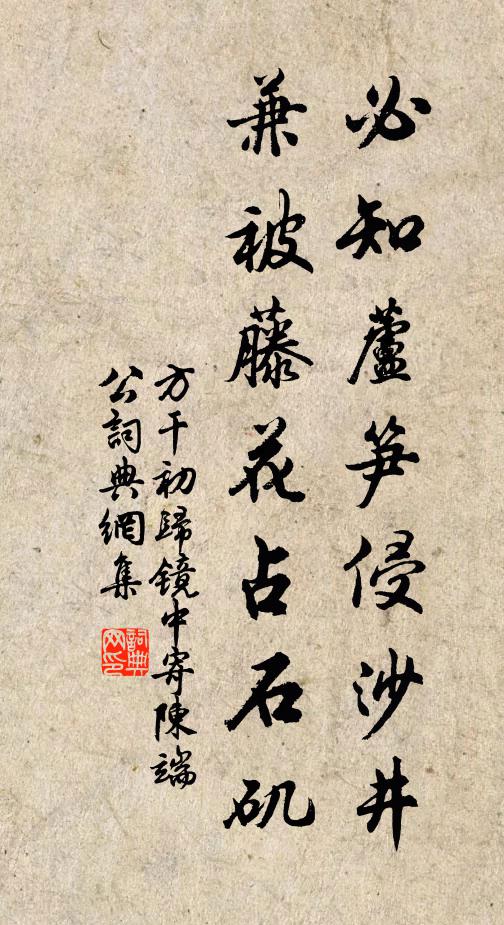 必知蘆笋侵沙井
兼被藤花占石矶
方干初歸镜中寄陳端
公詞典網集
詞典
网印